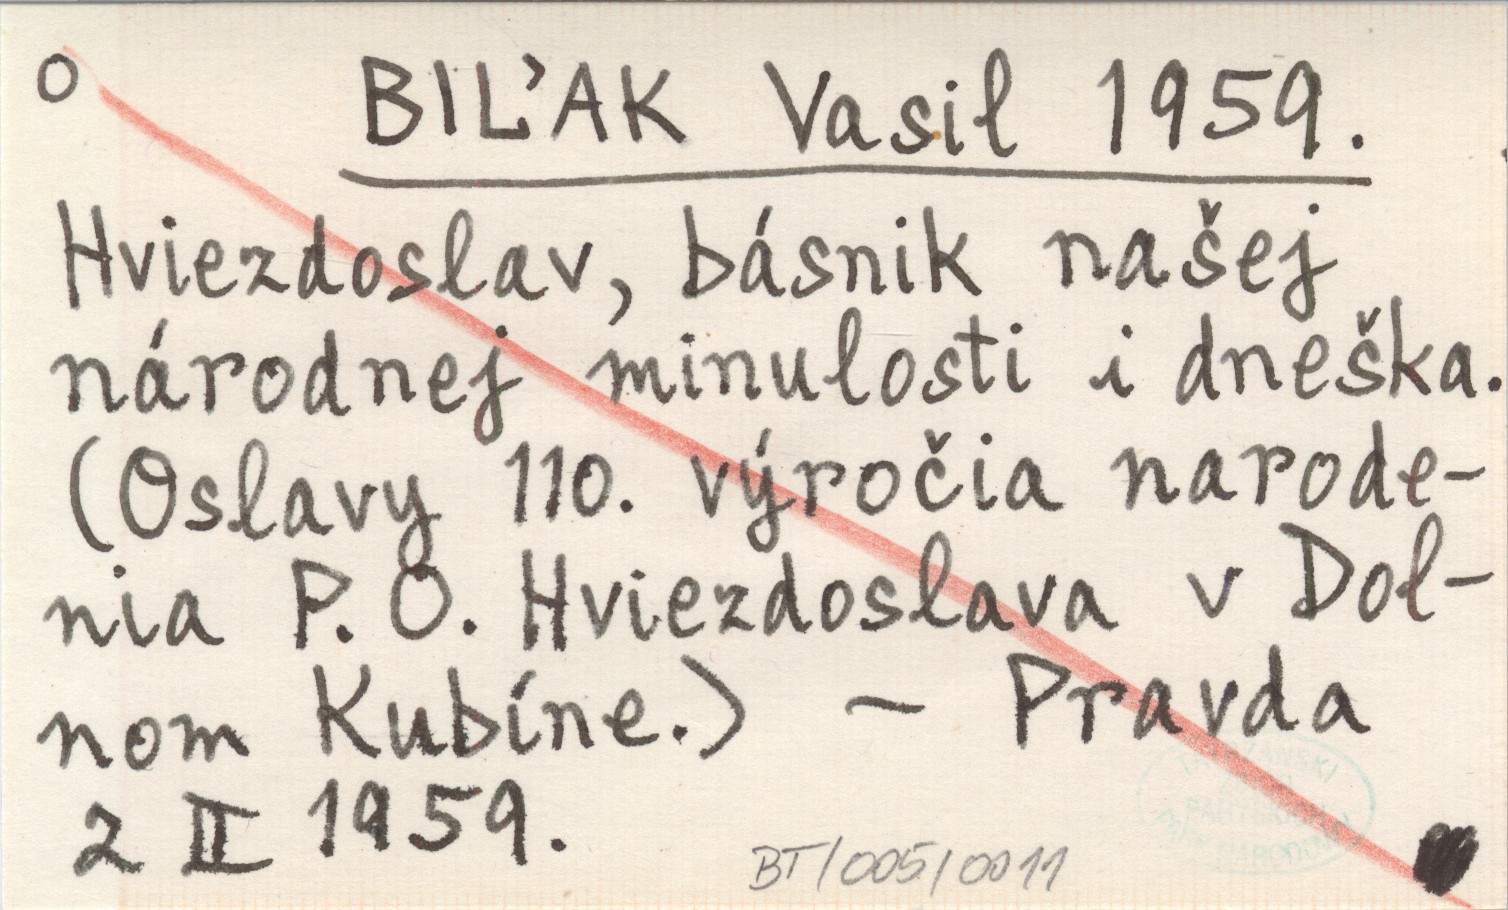 o BIĽAK Vasil 1959.
Hviezdoslav, básnik našej
národnej minulosti i dneška.
(Oslavy 110. výročia narode-
nia P. O. Hviezdoslava v Dol-
nom Kubíne.) – Pravda
2 II 1959.
BT/005/0011